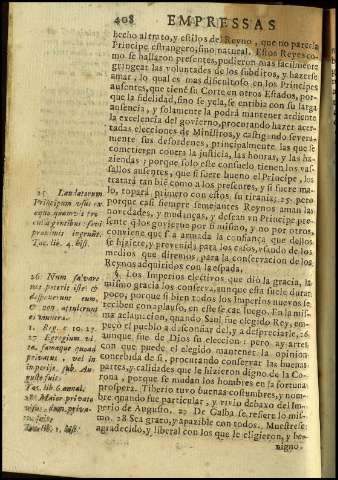 408 EMPRESSAS
hecho al trato, y estilos del Reyno, que no parecia
Principe estrangero, sino natural. Estos Reyes co-
mo se hallaron presentes, pudieron mas facilmente
grangear las voluntades de los subditos, y hazerse
amar, lo qual es mas dificultoso en los Principes
ausentes, que tiené su Corte en otros Estados, por-
que la fidelidad, sino se yela, se entibia con su larga
ausencia, y solamente la podrà mantener ardiente
la excelencia del govierno, procurando hazer acer-
tadas elecciones de Ministros, y castigando severa-
mente sus desordenes, principalmente las que se
cometieren contra la justicia, las honras, y las ha-
ziendas; porque solo este consuelo tienen los vas-
sallos ausentes, que si fuere bueno el Principe, los
tratarà tan bié como a los presentes, y si fuere ma-
lo, topará primero con estos su tirania; 25. pero
porque casi siempre semejantes Reynos aman las
novedades, y mudanças, y desean vn Principe pre-
sente q los govierne por si mismo, y no por otros,
conviene, que sea armada la confiança que dellos
se hiziere, y prevenida para los casos, vsando de los
medios que diremos, para la conservacion de los
Reynos adquiridos con la espada.
§. Los Imperios electivos que diò la gracia, la
misma gracia los conserva, aunque esta suele durar
poco, porque si bien todos los Imperios nuevos se
reciben con aplauso, en este se cae luego. En la mis-
ma aclamacion, quando Saul fue elegido Rey, em-
peçò el pueblo a desconfiar del, y a despreciarle, 26
aunque fue de Dios su eleccion: pero ay artes
con que puede el elegido mantener la opinion
concebida de si, procurando conservar las buenas
partes, y calidades que le hizieron digno de la Co-
rona, porque se mudan los hombres en la fortuna
prospera. Tiberio tuvo buenas costumbres, y nom-
bre quando fue particular, y vivió debaxo del Im-
perio de Augusto. 27 De Galba se refiere lo mis-
mo. 28 Sea grato, y apazible con todos. Muestrese
agradecido, y liberal con los que le eligieron, y be-
nigno
25 Laudatorum
Principum vsus ex
æquo, quamvis pro-
cul agentibus: sævi
proximis ingruũt.
Tac. lib. 4. hist.
26 Num salvare
nos poterit iste? &
despexerunt eum,
& non attulerunt
ei munera.
1. Reg. c. 10. 27.
27 Egregium vi-
ta, famaque quoad
privatus, vel in
imperijs sub Au-
gusto fuit.
Tac. lib. 6. annal.
28 Maior privato
visus, dum priva-
tus fuit.
Tac. lib. 1. hist.